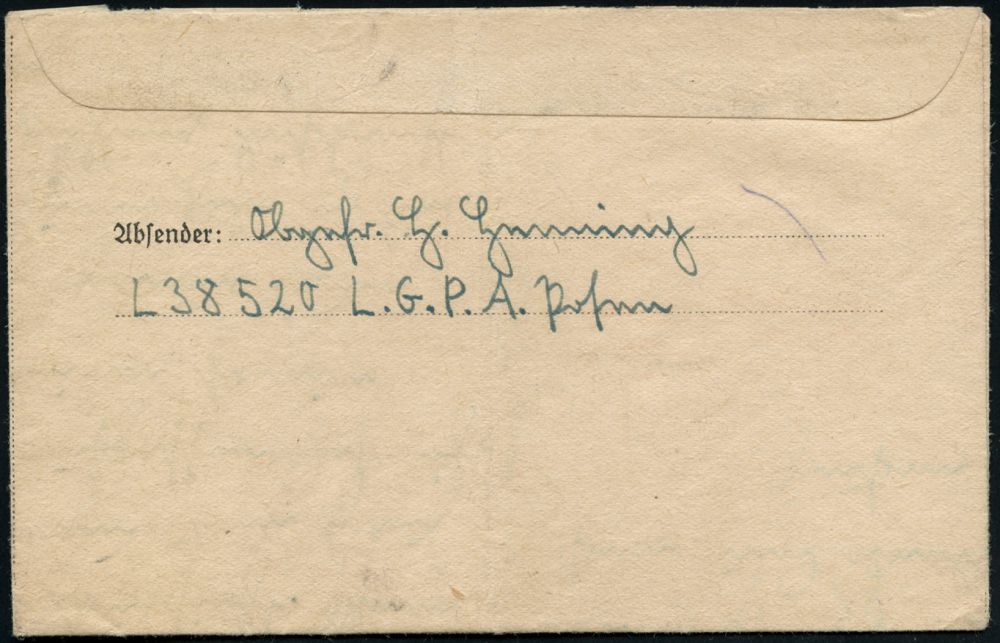 Absender: Obgefr. H. Henning
L 38520 L.G.P.A. Posen